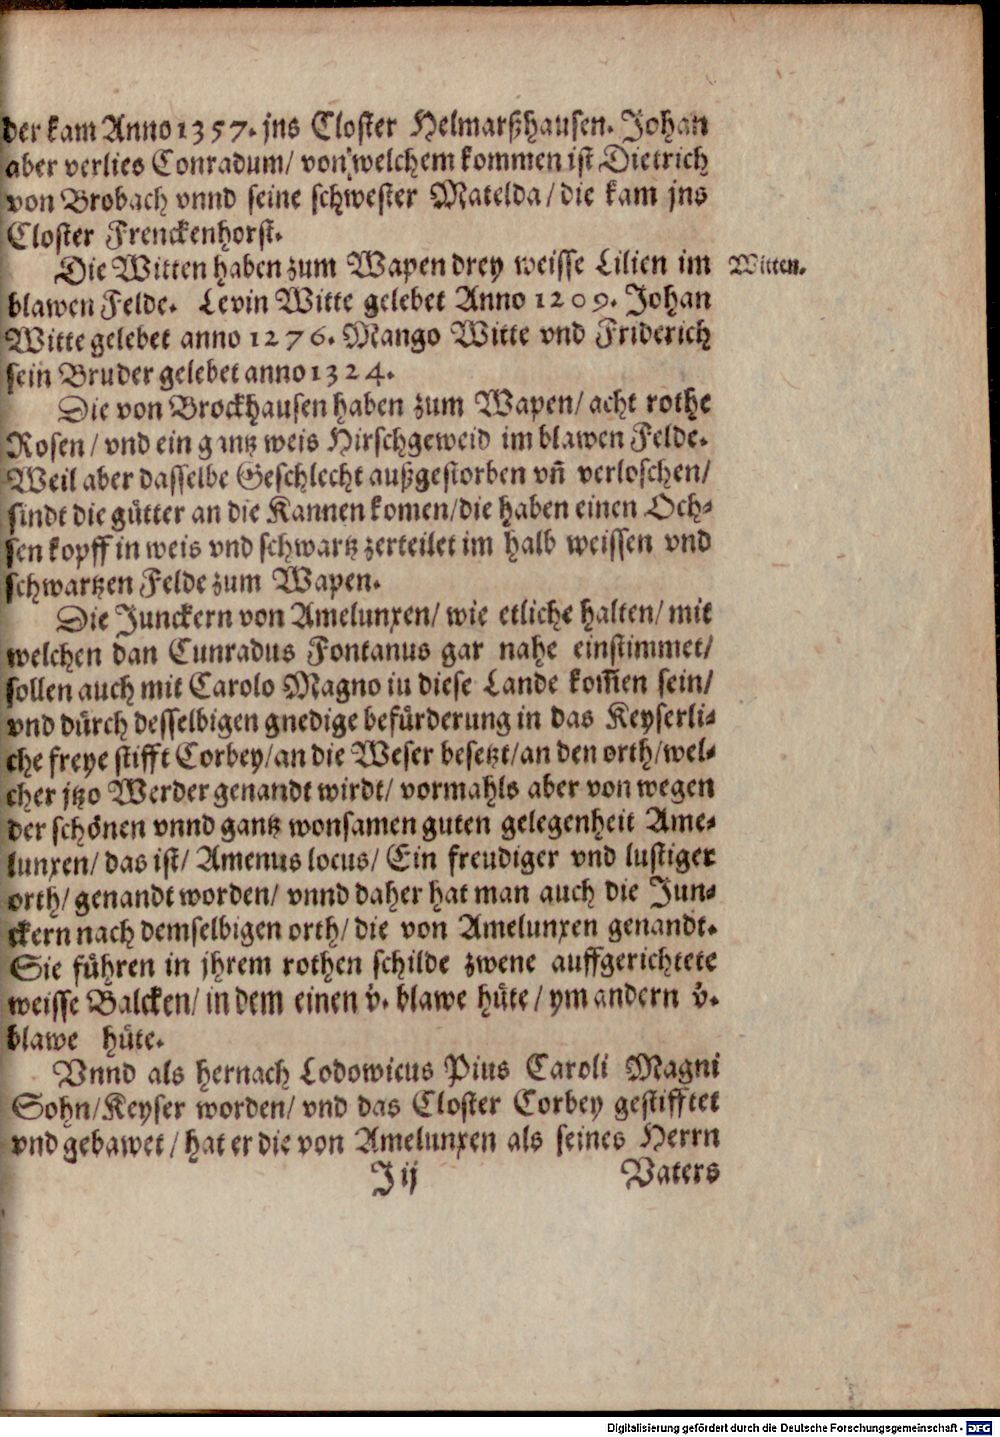 der kam Anno 1357. jns Closter Helmarßhausen. Johan
aber verlies Conradum/ von welchem kommen ist Dietrich
von Brobach vnnd seine schwester Matelda/ die kam jns
Closter Frenckenhorst.
Die Witten haben zum Wapen drey weisse Lilien im
Witten.
blawen Felde. Levin Witte gelebet Anno 1209. Johan
Witte gelebet anno 1276. Mango Witte vnd Friderich
sein Bruder gelebet anno 1324.
Die von Brockhausen haben zum Wapen/ acht rothe
Rosen/ vnd ein gantz weis Hirschgeweid im blawen Felde.
Weil aber dasselbe Geschlecht außgestorben vñ verloschen/
sindt die gütter an die Kannen komen/ die haben einen Och-
sen kopff in weis vnd schwartz zerteilet im halb weissen vnd
schwartzen Felde zum Wapen.
Die Junckern von Amelunxen/ wie etliche halten/ mit
welchen dan Cunradus Fontanus gar nahe einstimmet/
sollen auch mit Carolo Magno in diese Lande kom̃en sein/
vnd dürch desselbigen gnedige befürderung in das Keyserli-
che freye stifft Corbey/ an die Weser besetzt/ an den orth/ wel-
cher jtzo Werder genandt wirdt/ vormahls aber von wegen
der schönen vnnd gantz wonsamen guten gelegenheit Ame-
lunxen/ das ist/ Amenus locus/ Ein freudiger vnd lustiger
orth/ genandt worden/ vnnd daher hat man auch die Jun-
ckern nach demselbigen orth/ die von Amelunxen genandt.
Sie führen in jhrem rothen schilde zwene auffgerichtete
weisse Balcken/ in dem einen v. blawe hüte/ ym andern v.
blawe hüte.
Vnnd als hernach Lodowicus Pius Caroli Magni
Sohn/ Keyser worden/ vnd das Closter Corbey gestifftet
vnd gebawet/ hat er die von Amelunxen als seines Herrn
J ij
Vaters
Digitalisierung gefördert durch die Deutsche Forschungsgemeinschaft - DFG